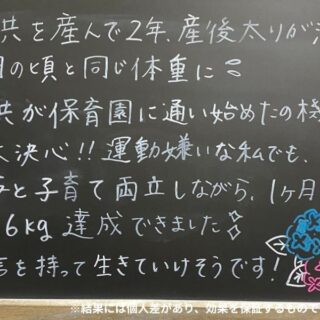 共を産んで2年、産後太りが
の頃と同じ体重に
共が保育園に通い始めたの機
決心!!運動嫌いな私でも、
と子育て両立しながら、1ヶ月
6kg達成できました
を持って生きていけそうです!
※結果には個人差があり、効果を保証するもので